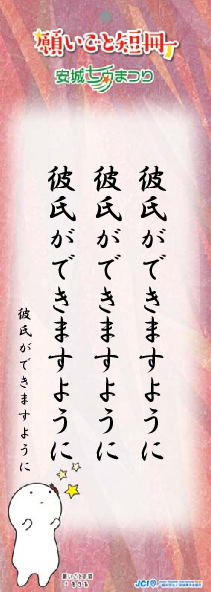 願いごと短冊
安城七夕まつり
彼氏ができますように
彼氏ができますように
彼氏ができますように
彼氏ができますように
願いごとの森
JCI